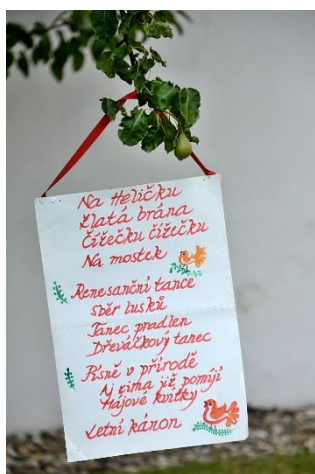 Na Heličku
Zlatá brána
Čížečku čížečku
Na mostek
Renesanční tance
Sběr lusků
Tanec pradlen
Dřeváčkový tanec
Písně v přírodě
Aj zima již pomíjí
Hájové kvítky
Letní kánon